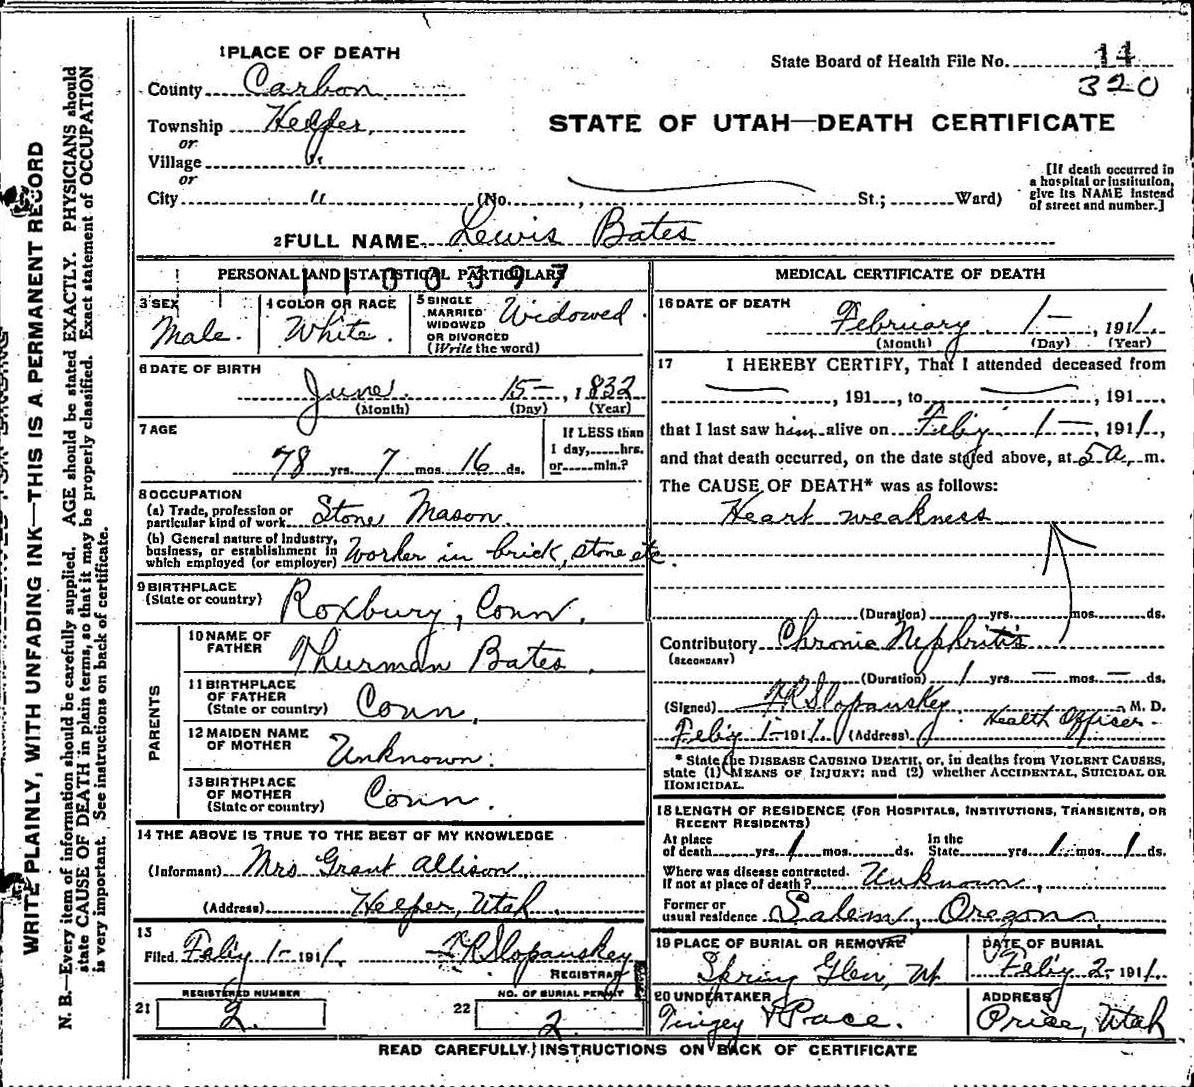 WRITE PLAINLY, WITH UNFADING INK—THIS IS A PERMANENT RECORD
N. B.—Every item of information should be carefully supplied. AGE should be stated EXACTLY. PHYSICIANS should
state CAUSE OF DEATH in plain terms, so that it may be properly classified. Exact statement of OCCUPATION
is very important. See instructions on back of certificate.
1 PLACE OF DEATH
County Carbon
Township Helper,
or
Village "
or
City "
(No. , St.; Ward)
State Board of Health File No. 14
320
STATE OF UTAH—DEATH CERTIFICATE
[If death occurred in
a hospital or institution,
give its NAME instead
of street and number.]
2 FULL NAME Lewis Bates
PERSONAL AND STATISTICAL PARTICULARS
1100397
3 SEX
Male.
4 COLOR OR RACE
White.
5 SINGLE
MARRIED
WIDOWED
OR DIVORCED
(Write the word)
Widowed.
6 DATE OF BIRTH
June 15—, 1832
(Month) (Day) (Year)
7 AGE
78 yrs. 7 mos. 16 ds.
If LESS than
1 day, hrs.
or min.?
8 OCCUPATION
(a) Trade, profession or
particular kind of work Stone Mason.
(b) General nature of Industry,
business, or establishment in
which employed (or employer) Worker in brick, stone etc.
9 BIRTHPLACE
(State or country) Roxbury, Conn.
PARENTS
10 NAME OF
FATHER Thurman Bates.
11 BIRTHPLACE
OF FATHER
(State or country) Conn.
12 MAIDEN NAME
OF MOTHER Unknown.
13 BIRTHPLACE
OF MOTHER
(State or country) Conn.
14 THE ABOVE IS TRUE TO THE BEST OF MY KNOWLEDGE
(Informant) Mrs Grant Allison.
(Address) Helper, Utah.
15
Filed Feb'y 1- 1911. F R Slopanskey
REGISTRAR
21 REGISTERED NUMBER
2.
22 NO. OF BURIAL PERMIT
2
MEDICAL CERTIFICATE OF DEATH
16 DATE OF DEATH
February 1—, 1911.
(Month) (Day) (Year)
17 I HEREBY CERTIFY, That I attended deceased from
— , 191 , to — , 191 ,
that I last saw him alive on Feb'y 1—, 1911,
and that death occurred, on the date stated above, at 5 a. m.
The CAUSE OF DEATH* was as follows:
Heart weakness
(Duration) yrs. mos. ds.
Contributory Chronic Nephritis
(SECONDARY)
(Duration) 1 yrs. — mos. — ds.
(Signed) F R Slopanskey, M. D.
Feb'y 1- 1911. (Address) Health Officer-
* State the DISEASE CAUSING DEATH, or, in deaths from VIOLENT CAUSES,
state (1) MEANS OF INJURY; and (2) whether ACCIDENTAL, SUICIDAL OR
HOMICIDAL.
18 LENGTH OF RESIDENCE (FOR HOSPITALS, INSTITUTIONS, TRANSIENTS, OR
RECENT RESIDENTS)
At place
of death yrs. 1 mos. ds. In the
State yrs. 1 mos. 1 ds.
Where was disease contracted.
If not at place of death? Unknown,
Former or
usual residence Salem, Oregon.
19 PLACE OF BURIAL OR REMOVAL
Spring Glen, Ut
DATE OF BURIAL
Feb'y 2- 1911.
20 UNDERTAKER
Tingey & Pace.
ADDRESS
Price, Utah
READ CAREFULLY INSTRUCTIONS ON BACK OF CERTIFICATE